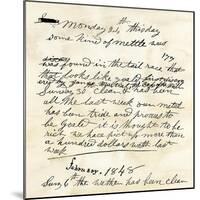 Monday 24 th this day
some kind of mettle was
was found in the tail race that
that looks like goald
Sunday 30 clear & has been
all the last week our metal
has been tride and proves to
be goald it is thought to be
rich we have pict up more than
a hundred dollars worth last
week
February, 1848
Sun, 6th the wether has been clear